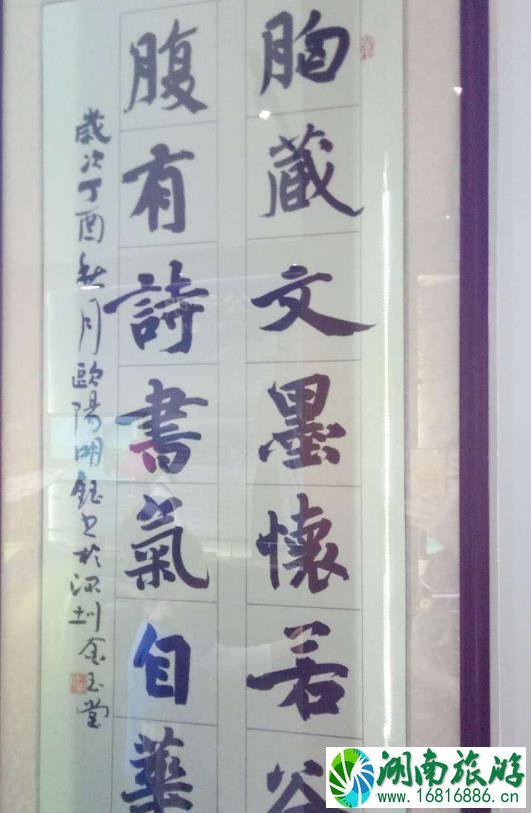 胸藏文墨懷若谷
腹有詩書氣自華
歲次丁酉秋月歐陽明鈺书於深圳金玉堂
湖南旅游
www.16816886.cn